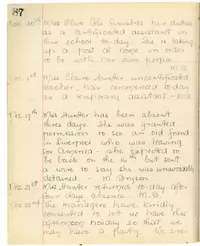 87
Nov. 30th Miss Olive Cole finishes her duties
as a certificated assistant in
this school today. She is taking
up a post at home in order
to be with her own people.
M.B.
Dec. 1st Miss Elaine Hunter, uncertificated
teacher, has commenced today as
a temporary assistant. M.B.
Dec. 17th Miss Hunter has been absent
three days. She was granted
permission to see an old friend
in Liverpool who was leaving
for America - she expected to
be back on the 16th but sent
a wire to say she was unavoidably
detained. - M. Bryson
Dec. 21st Miss Hunter returned today after
four days absence. M.B.
Dec. 22nd The managers have kindly
consented to let us have the
afternoon holiday so that we
may have a party. We are